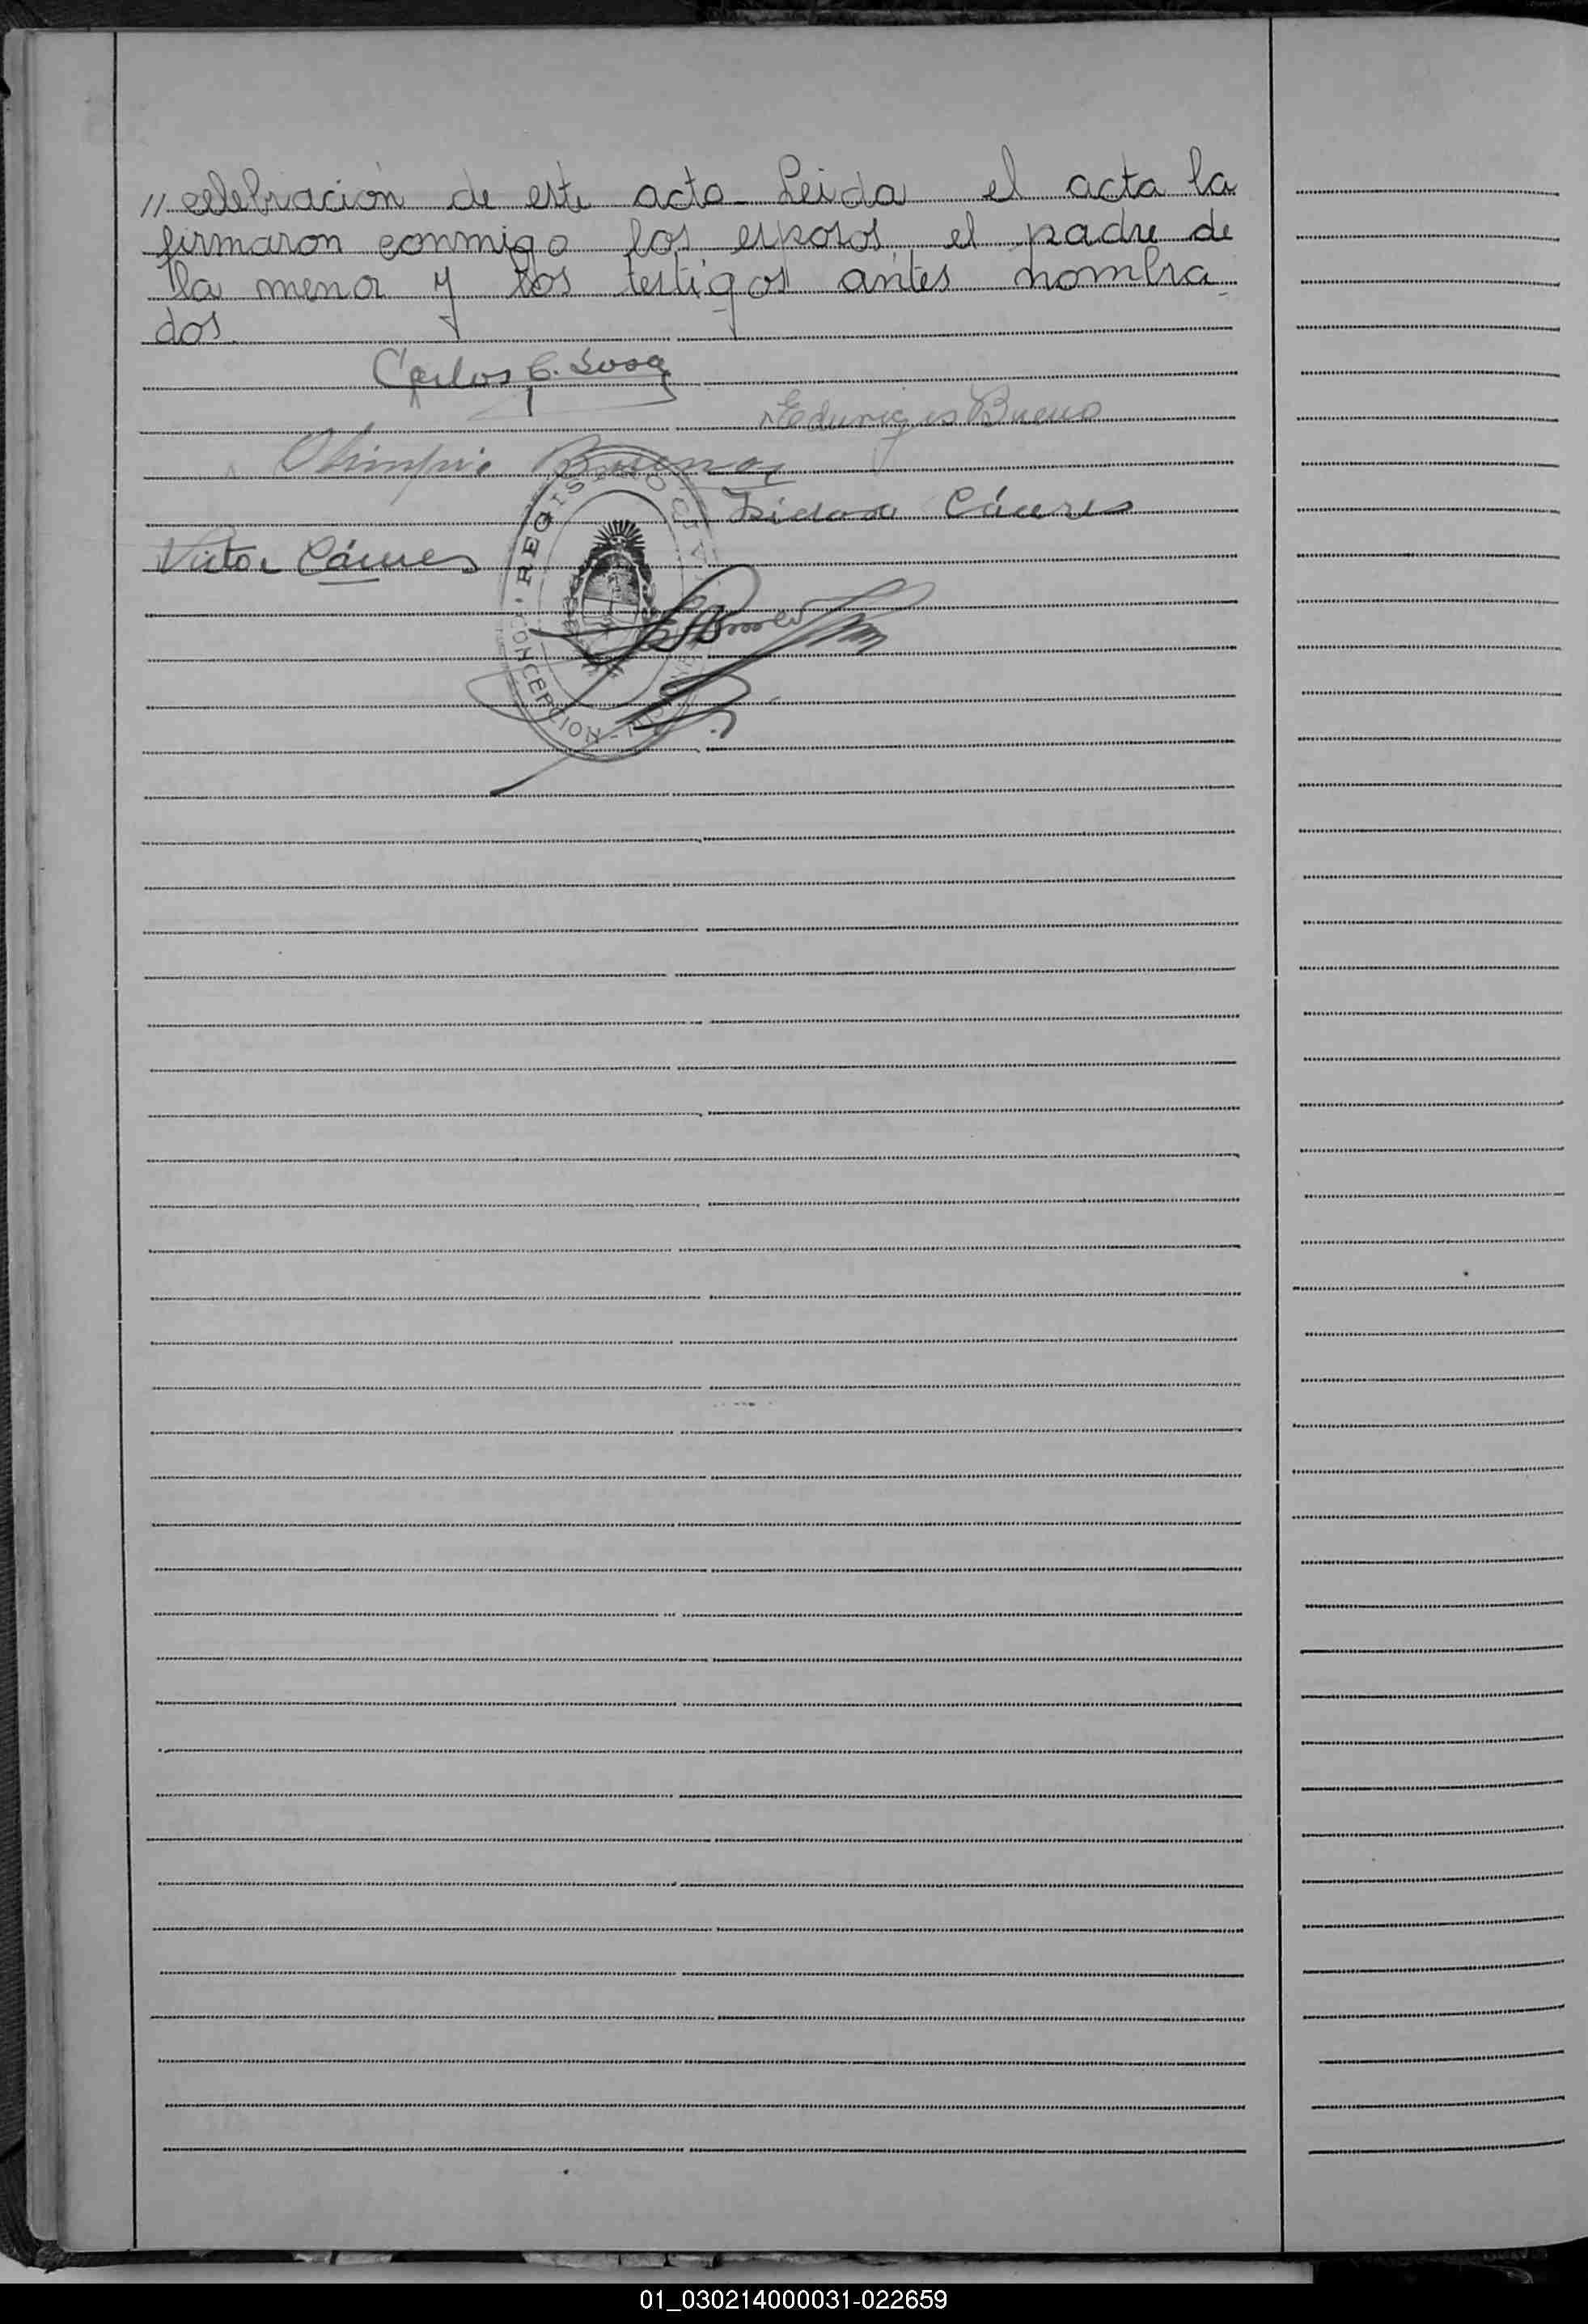 // celebración de este acto - Leida el acta la
firmaron conmigo los esposos, el padre de
la menor y los testigos antes nombra-
dos.
Carlos C. Sosa
Eduvigis Bueno
Olimpio Bueno
Isidora Cáceres
Victor Cáceres
REGISTRO CIVIL
CONCEPCION
01_030214000031-022659